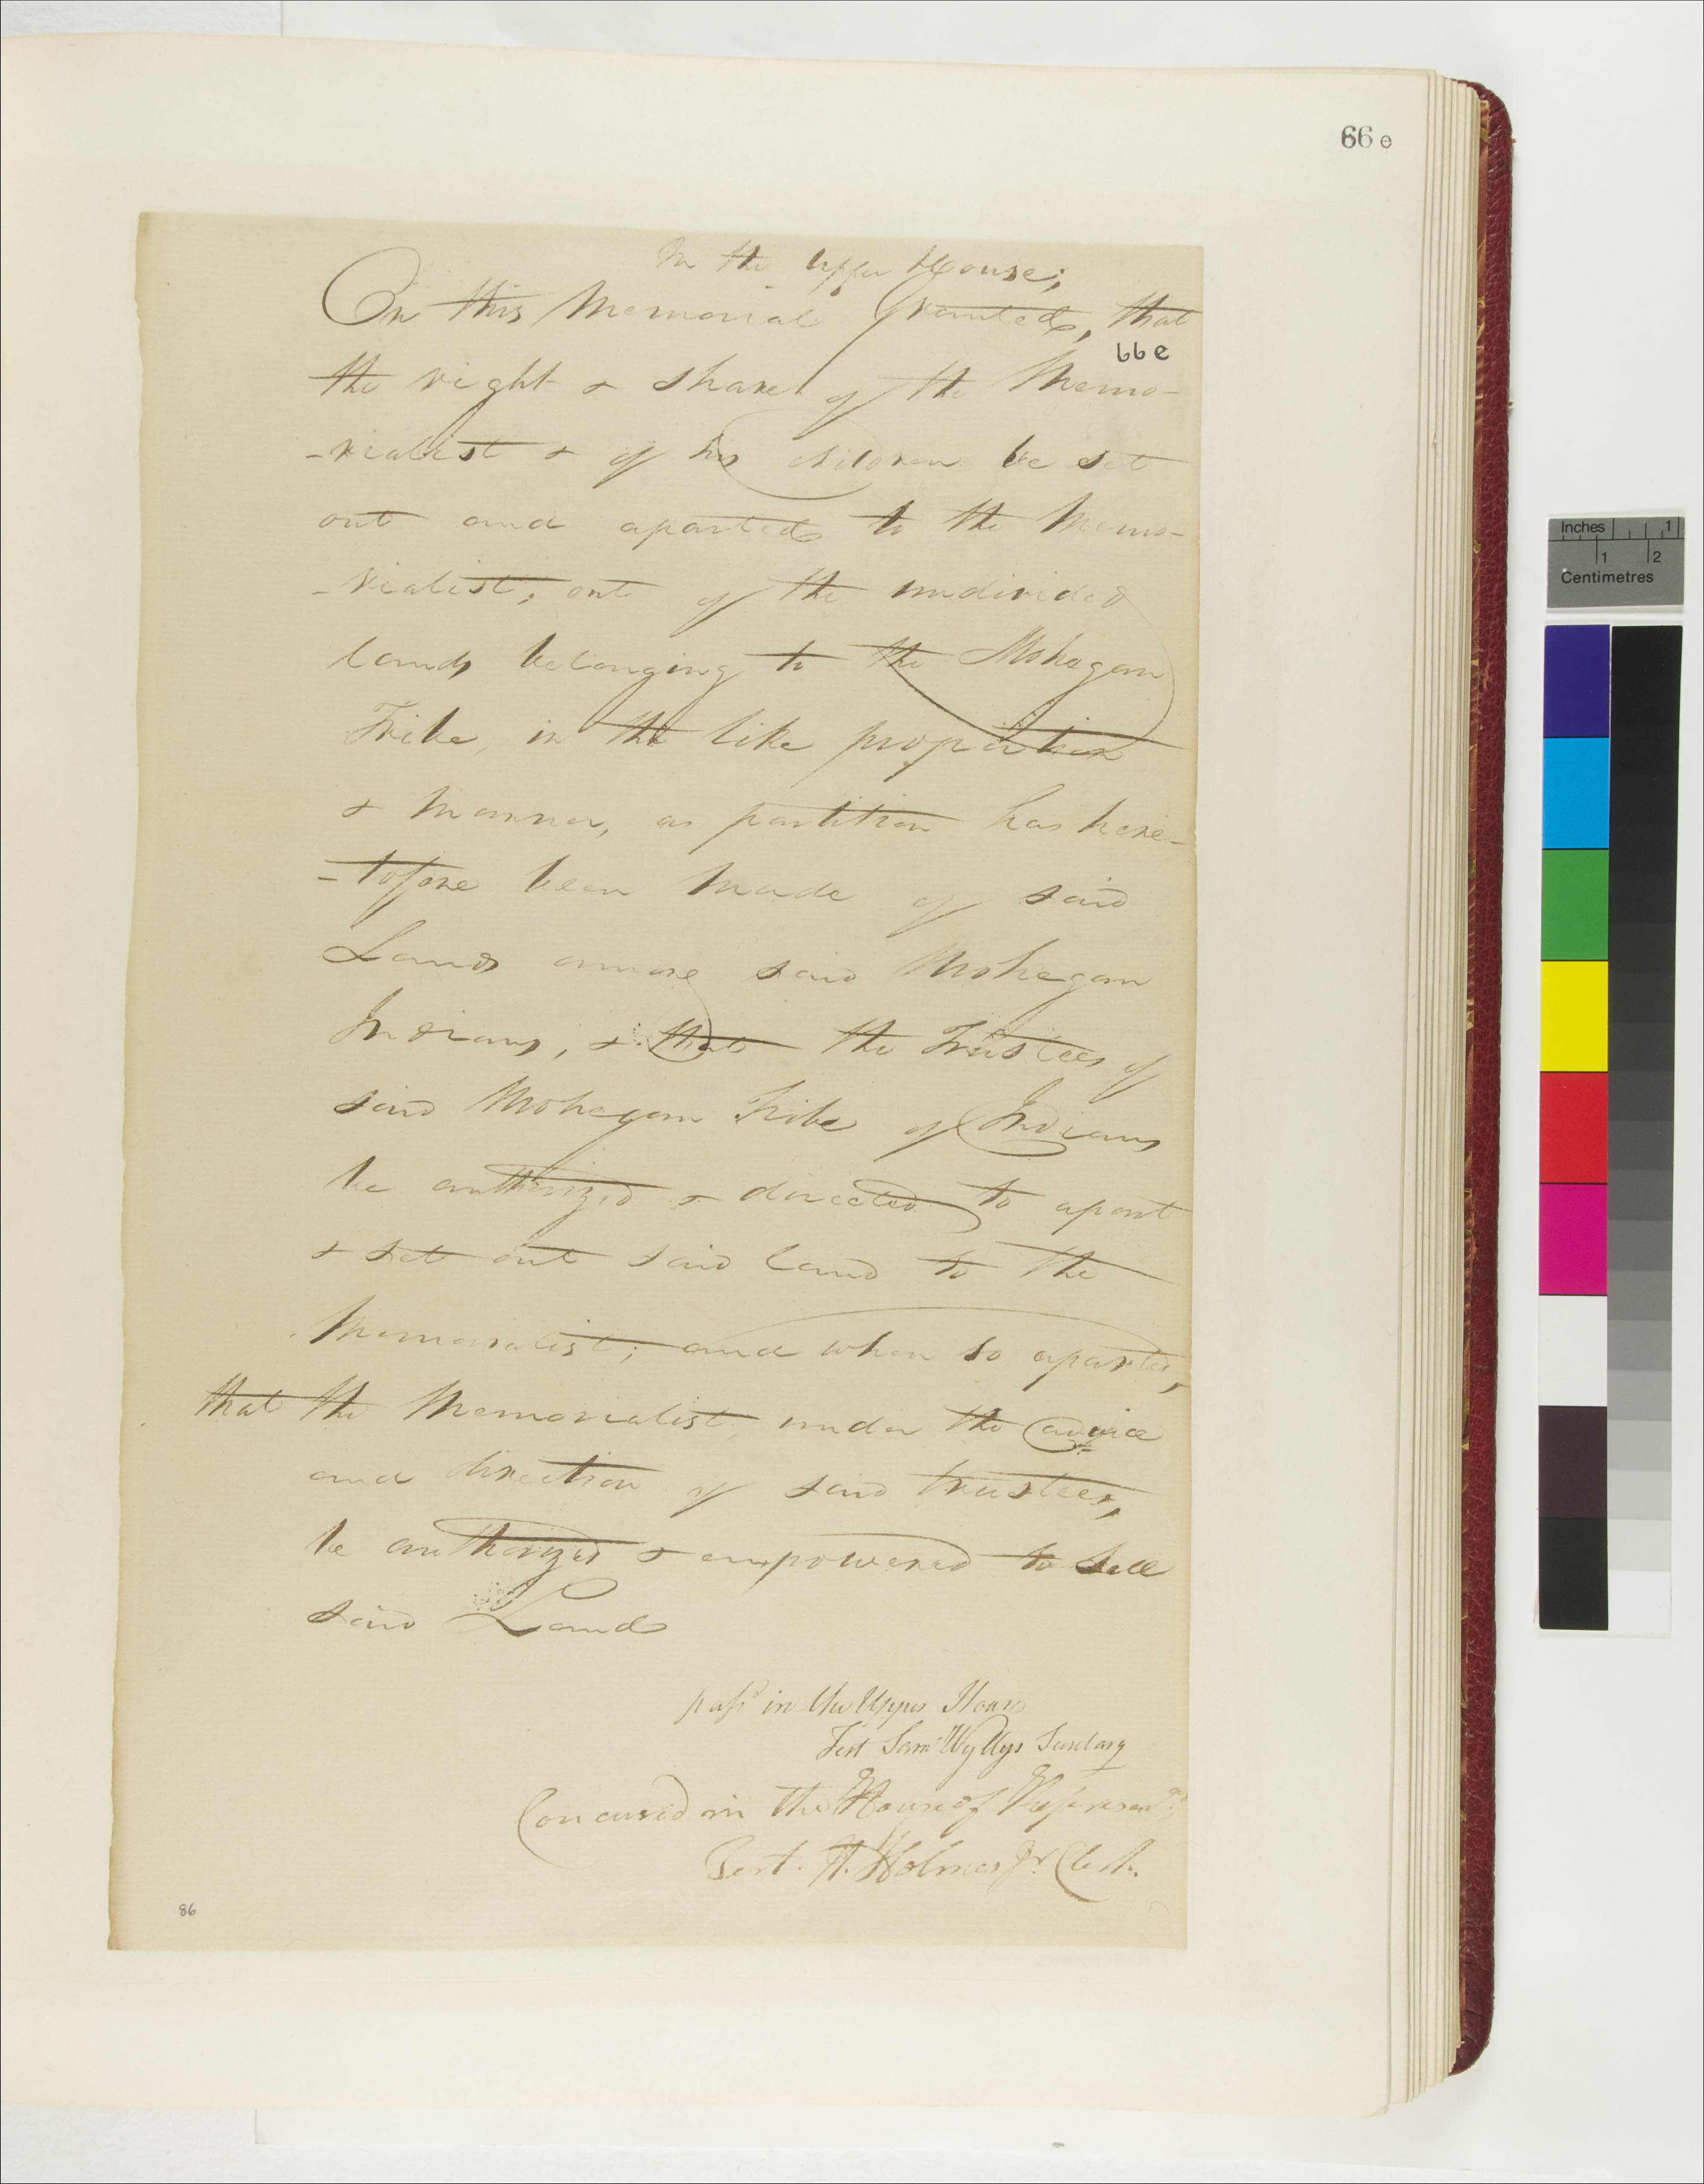 66 e
In the Upper House;
On this Memorial Granted, that
66 e
the right & share of the Memo-
-rialist & of his children be set
out and aparted to the Memo-
-rialist, out of the undivided
lands belonging to the Mohagan
Tribe, in the like proportion
& manner, as partition has here-
-tofore been made of said
Lands among said Mohegan
Indians, & that the Trustees of
said Mohegan Tribe of Indians
be authorized & directed to apart
& set out said land to the
Memorialist; and when so aparted,
that the Memorialist under the advice
and direction of said trustees,
be authorized & empowered to sell
said Land
passd in the Upper House
Test Saml Wyllys Secretary
Concurred in the House of Represents
Test. U. Holmes Jr. Clerk.
86
Inches 1
1 2
Centimetres